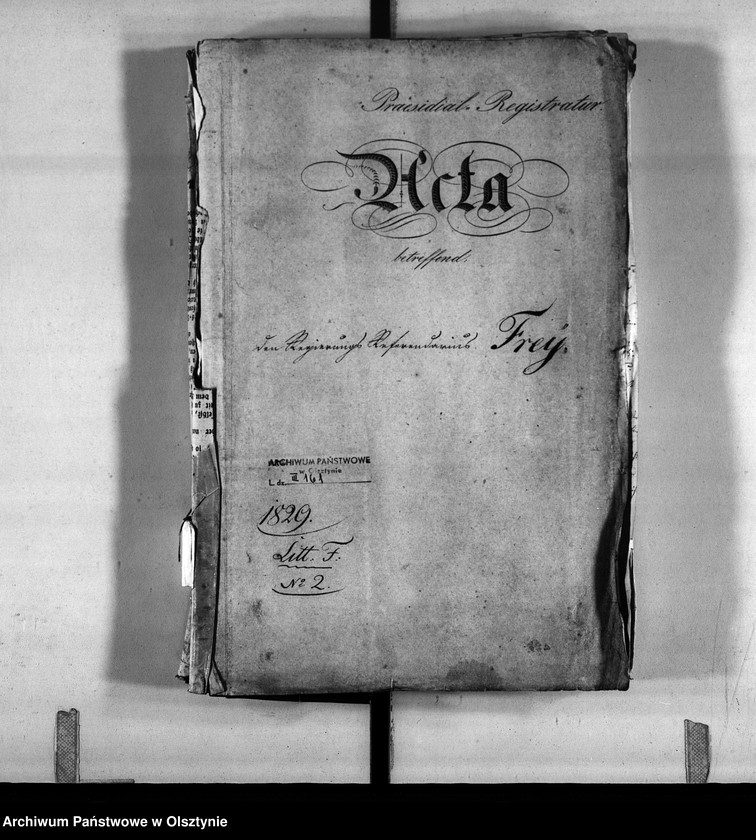 Præsidial-Registratur.
Acta
betreffend.
den Regierungs Referendarius. Freÿ.
ARCHIWUM PAŃSTWOWE
w Olsztynie
L. dz. III 161
1829.
Litt. F.
№ 2.
Archiwum Państwowe w Olsztynie